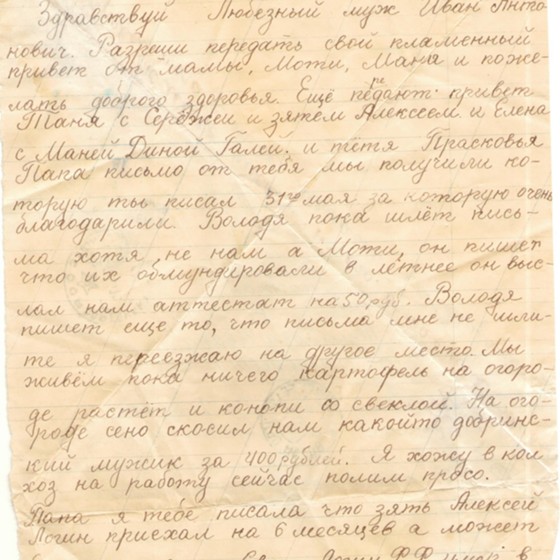 Здравствуй Любезный муж Иван Анто-
нович. Разреши передать свой пламенный
привет от мамы, Моти, Мана и поже-
лать доброго здоровья. Ещё педают привет
ре
Таня с Серёжей и зятем Алексеем и Елена
с Маней Диной Галей. и тётя Прасковья
Папа письмо от тебя мы получили ко-
торую ты писал 31го мая за которую очень
благодарили. Володя пока шлёт пись-
ма хотя не нам а Моти, он пишет
что их обмундировали в летнее он выс-
лал нам аттестат на 50 руб. Володя
пишет еще то, что письма мне не пиши-
те я переезжаю на другое место. Мы
живём пока ничего картофель на огоро-
де растёт и конопи со свеклой. На ого-
роде сено скосил нам какойто добринс-
кий мужик за 400 рублей. Я хожу в кол
хоз на работу сейчас полим просо.
Папа я тебе писала что зять Алексей
Логин приехал на 6 месяцев а может